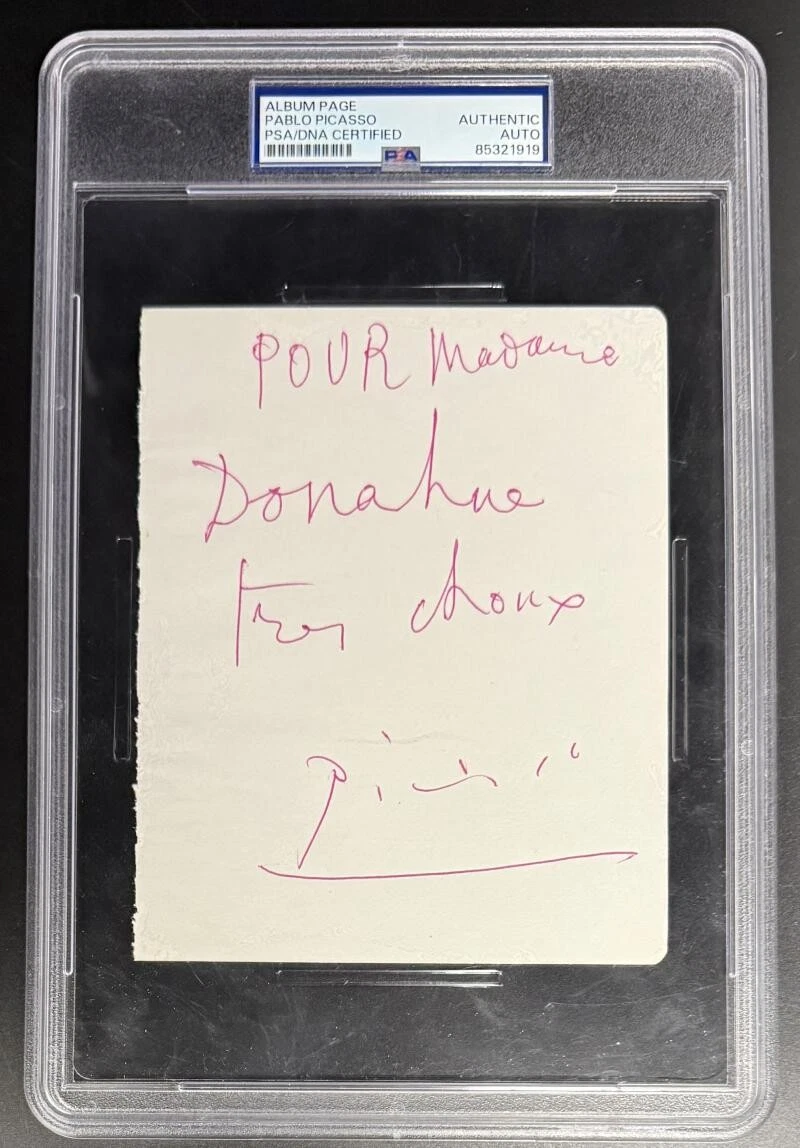 ALBUM PAGE
PABLO PICASSO AUTHENTIC
PSA/DNA CERTIFIED AUTO
85321919
PSA
POUR Madame
Donahue
tres choux
Picasso